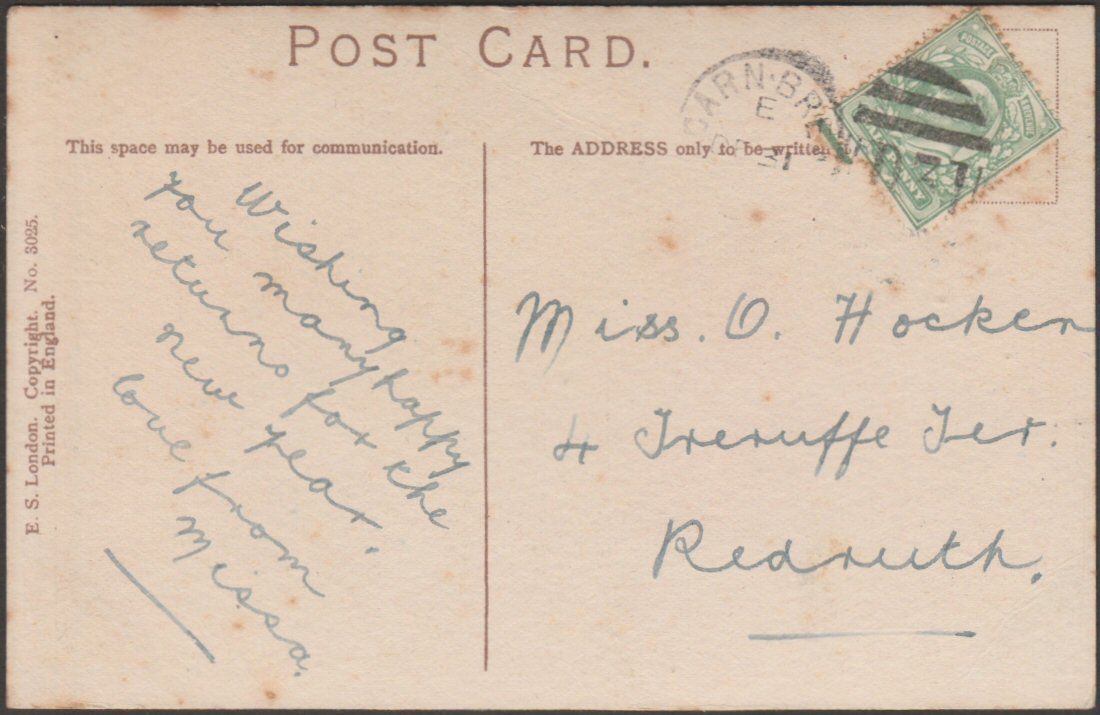 POST CARD.
This space may be used for communication.
The ADDRESS only to be written
E. S. London. Copyright. No. 3025.
Printed in England.
CARN BRE
E
DE 31
POSTAGE
REVENUE
HALF PENNY
Wishing
you many happy
returns for the
new year.
love from
Missa.
Miss. O. Hocken
4 Treruffe Ter.
Redruth.